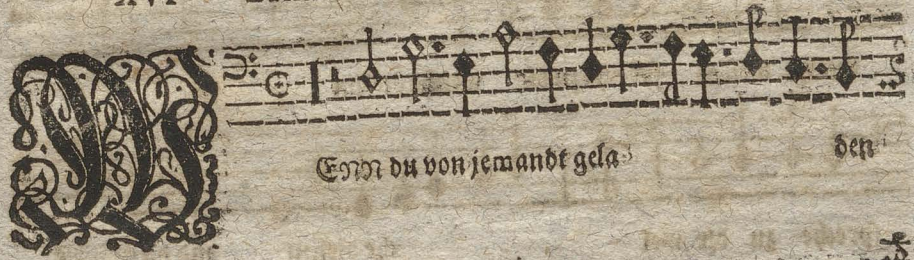 XVI
WENN du von jemandt gela- den